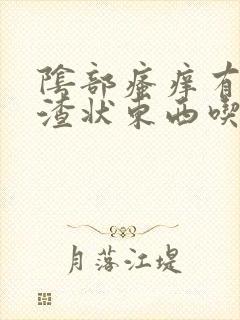 陰部瘙痒有
渣状东西喫
月落江堤